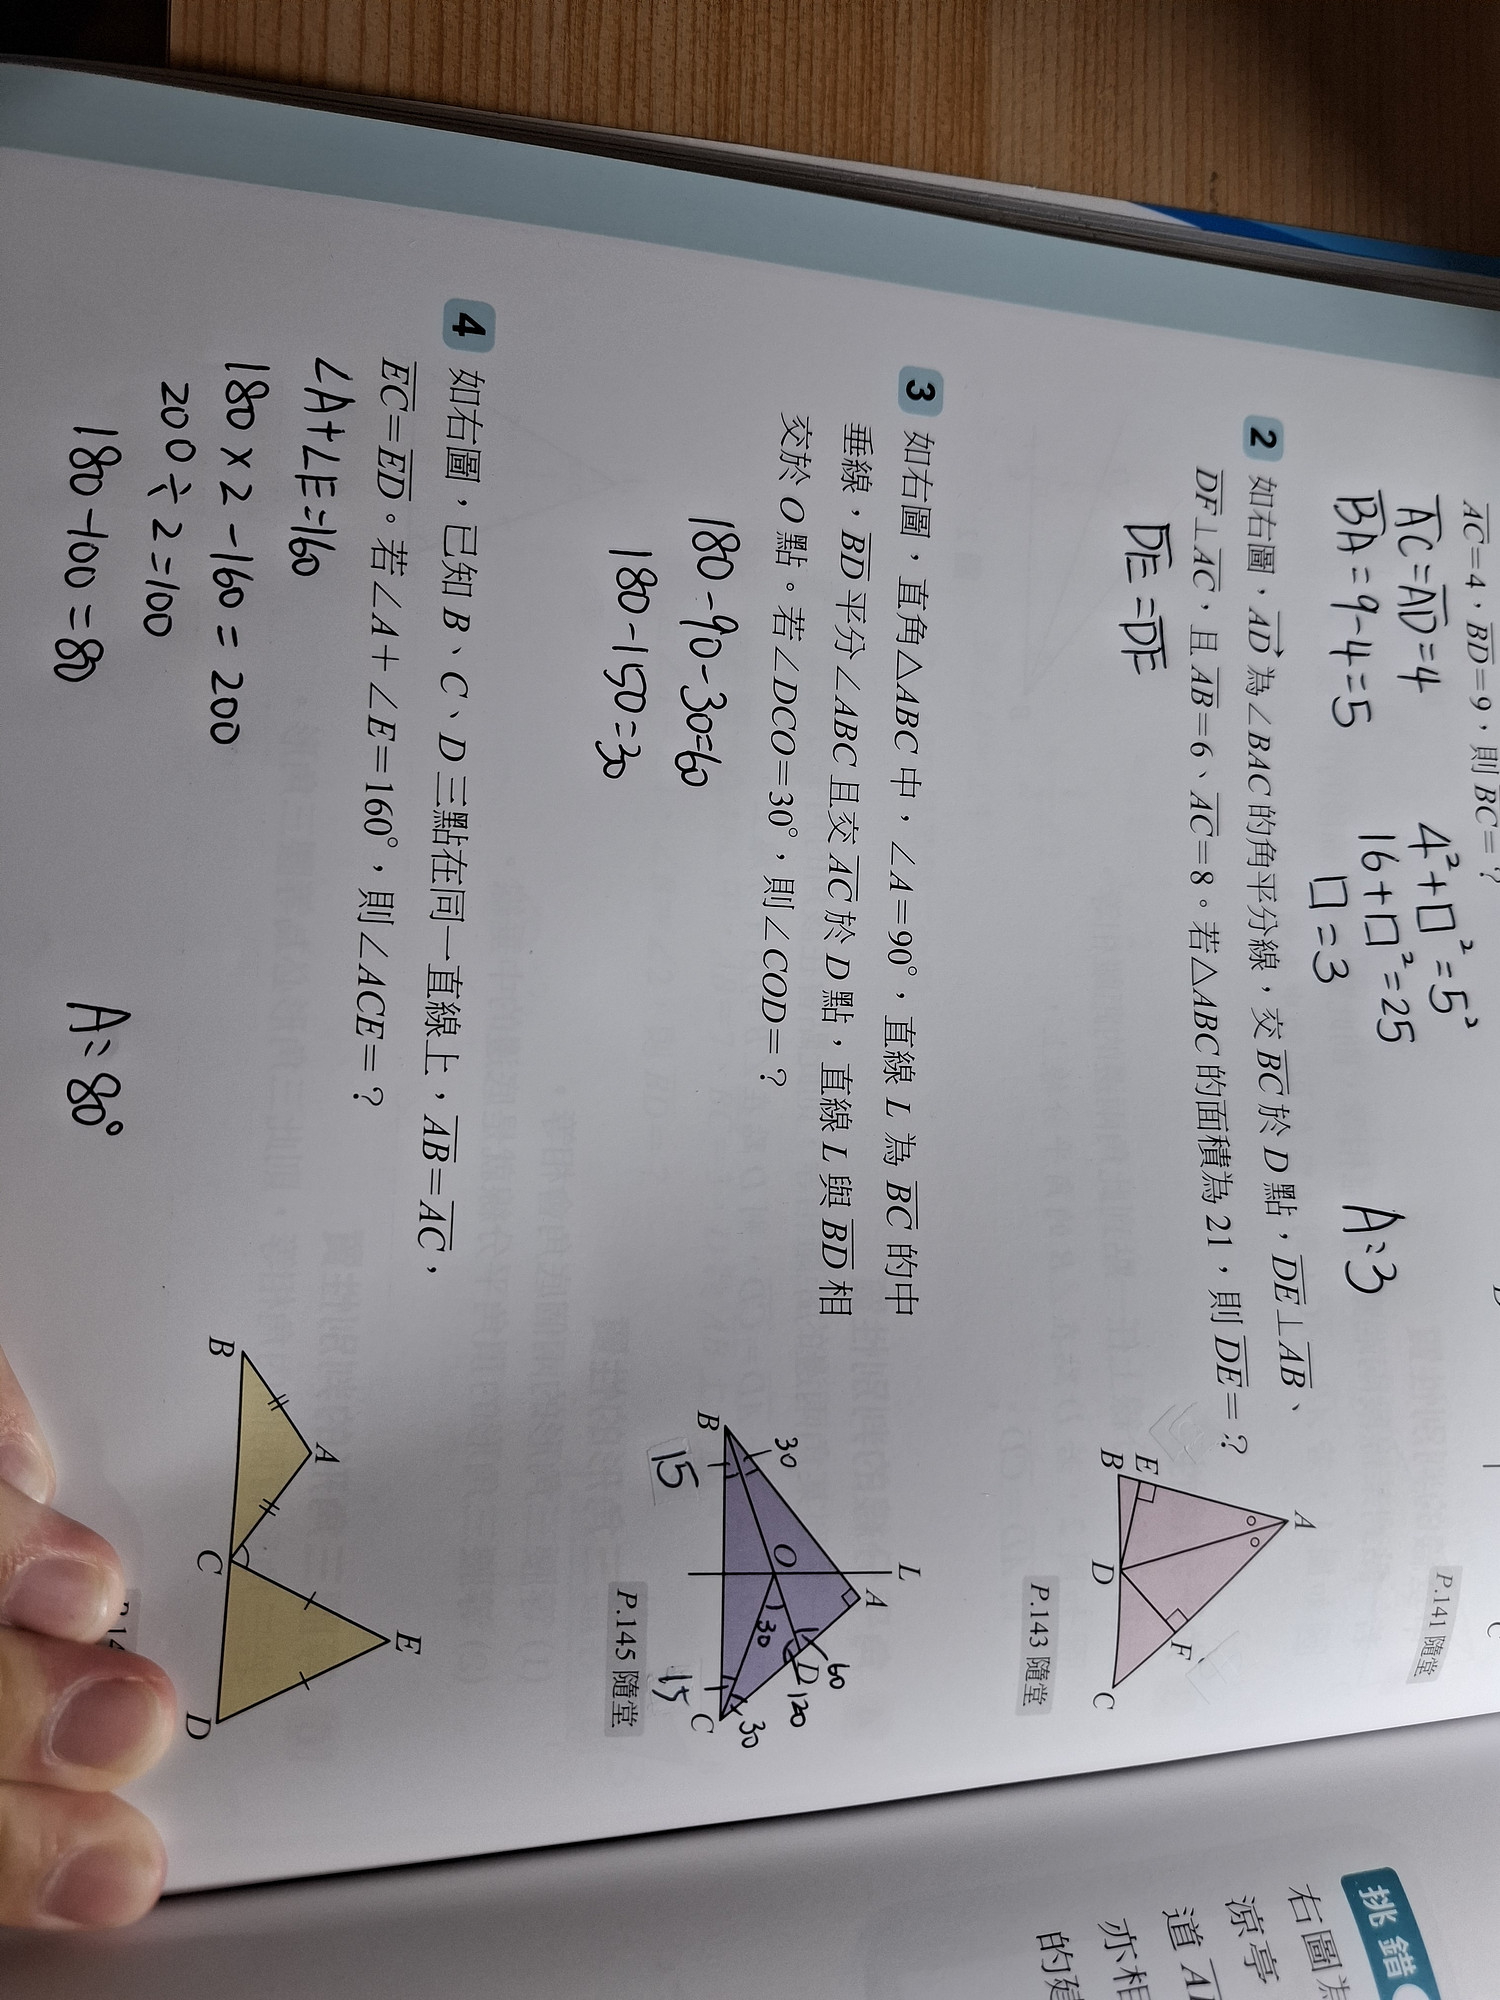 AC=4，BD=9，則 BC=？
AC=AD=4
BA=9-4=5
4²+□²=5²
16+□²=25
□=3
A:3
P.141 隨堂
2 如右圖，AD 為∠BAC 的角平分線，交 BC 於 D 點，DE⊥AB、
DF⊥AC，且 AB=6、AC=8。若△ABC 的面積為 21，則 DE=？
DE=DF
A
E
B
D
F
C
P.143 隨堂
3 如右圖，直角△ABC 中，∠A=90°，直線 L 為 BC 的中
垂線，BD 平分∠ABC 且交 AC 於 D 點，直線 L 與 BD 相
交於 O 點。若∠DCO=30°，則∠COD=？
180-90-30=60
180-150=30
L
A
30
60
O
D
120
30
B
C
30
15
15
P.145 隨堂
4 如右圖，已知 B、C、D 三點在同一直線上，AB=AC，
EC=ED。若∠A+∠E=160°，則∠ACE=？
∠A+∠E=160
180×2-160=200
200÷2=100
180-100=80
A:80°
E
A
B
C
D
挑錯
右圖為
涼亭
道
亦相
的建